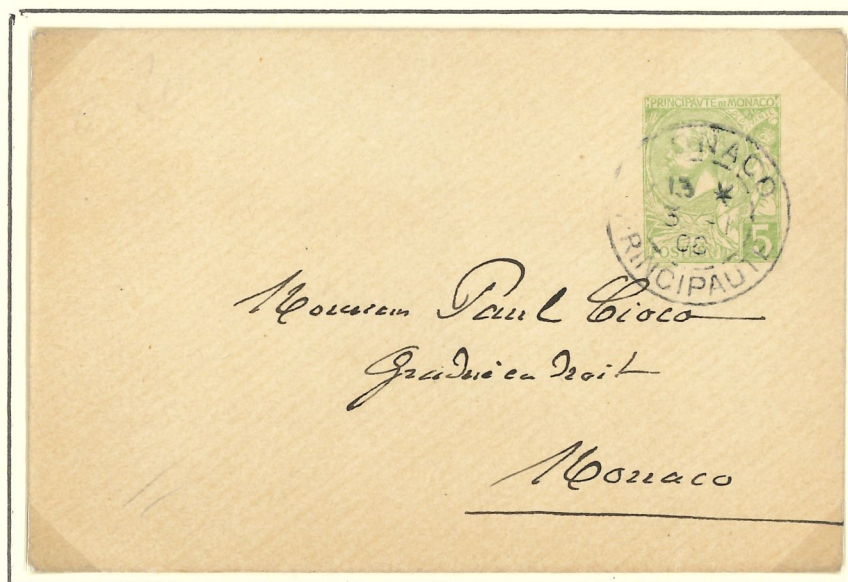 PRINCIPAVTE DE MONACO
POSTES
5
NACO
13 *
3
08
PRINCIPAUTE
Monsieur Paul Cioco
Gradué en Droit
Monaco